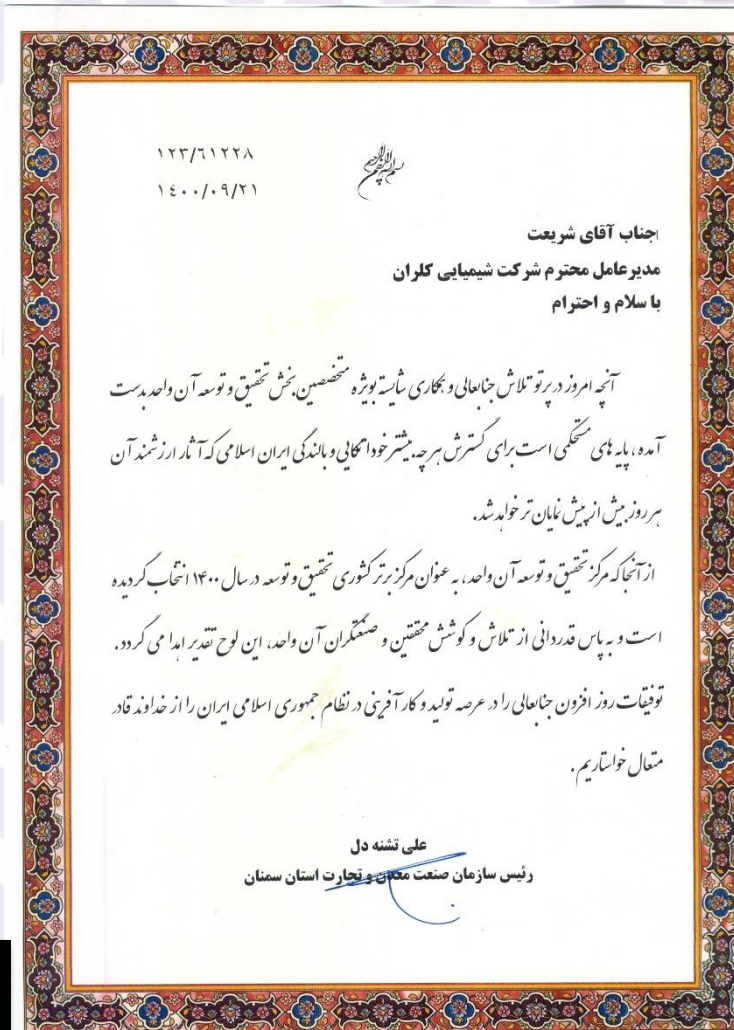 ۱۲۳/۶۱۲۲۸
۱۴۰۰/۰۹/۲۱
بسم الله الرحمن الرحیم
جناب آقای شریعت
مدیرعامل محترم شرکت شیمیایی کلران
با سلام و احترام
آنچه امروز در پرتو تلاش جنابعالی و همکاری شایسته بویژه متخصصین بخش تحقیق و توسعه آن واحد بدست
آمده، پایه های مستحکمی است برای گسترش هر چه بیشتر خوداتکایی و بالندگی ایران اسلامی که آثار ارزشمند آن
هر روز بیش از پیش نمایان تر خواهد شد.
از آنجا که مرکز تحقیق و توسعه آن واحد، به عنوان مرکز برتر کشوری تحقیق و توسعه در سال ۱۴۰۰ انتخاب گردیده
است و به پاس قدردانی از تلاش و کوشش محققین و صنعتگران آن واحد، این لوح تقدیر اهدا می گردد.
توفیقات روز افزون جنابعالی را در عرصه تولید و کار آفرینی در نظام جمهوری اسلامی ایران را از خداوند قادر
متعال خواستاریم.
علی تشنه دل
رئیس سازمان صنعت معدن و تجارت استان سمنان